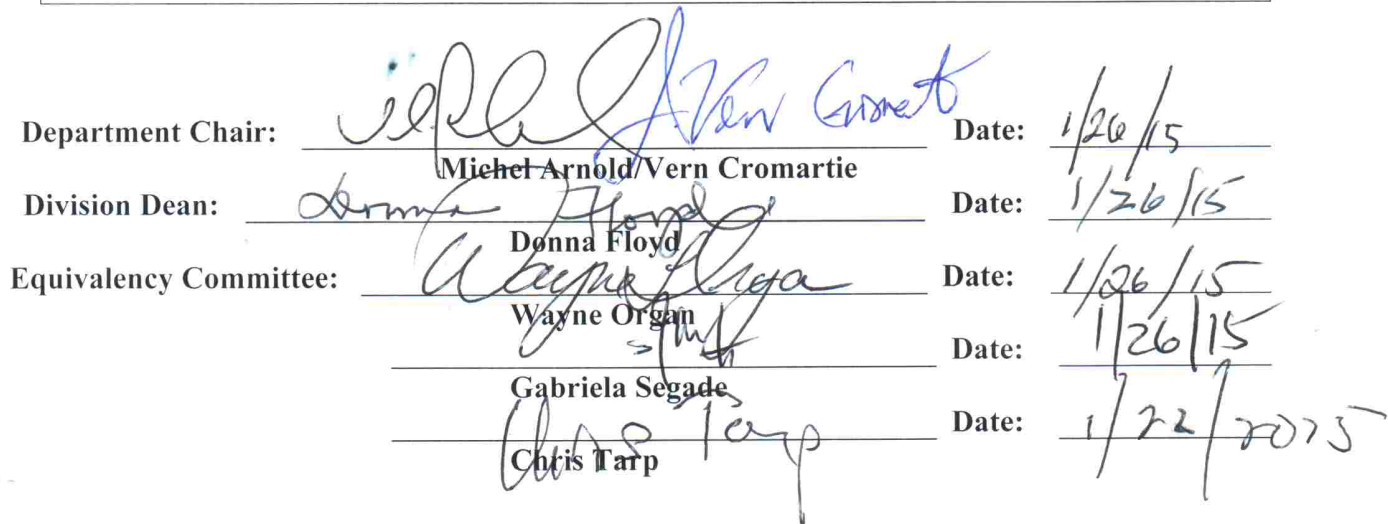 Vern Cromart
Department Chair: Date: 1/26/15
Michel Arnold/Vern Cromartie
Division Dean: Donna Floyd Date: 1/26/15
Donna Floyd
Equivalency Committee: Wayne Organ Date: 1/26/15
Wayne Organ
Date: 1/26/15
Gabriela Segade
Chris Tarp Date: 1/22/2015
Chris Tarp